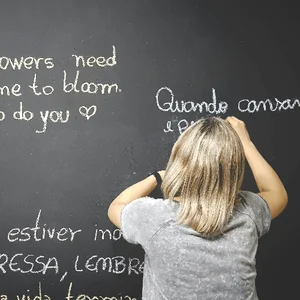 owers need
me to bloom.
o do you ♡
Quando cansar
e p
estiver ind
RESSA, LEMBRE
a vida termin